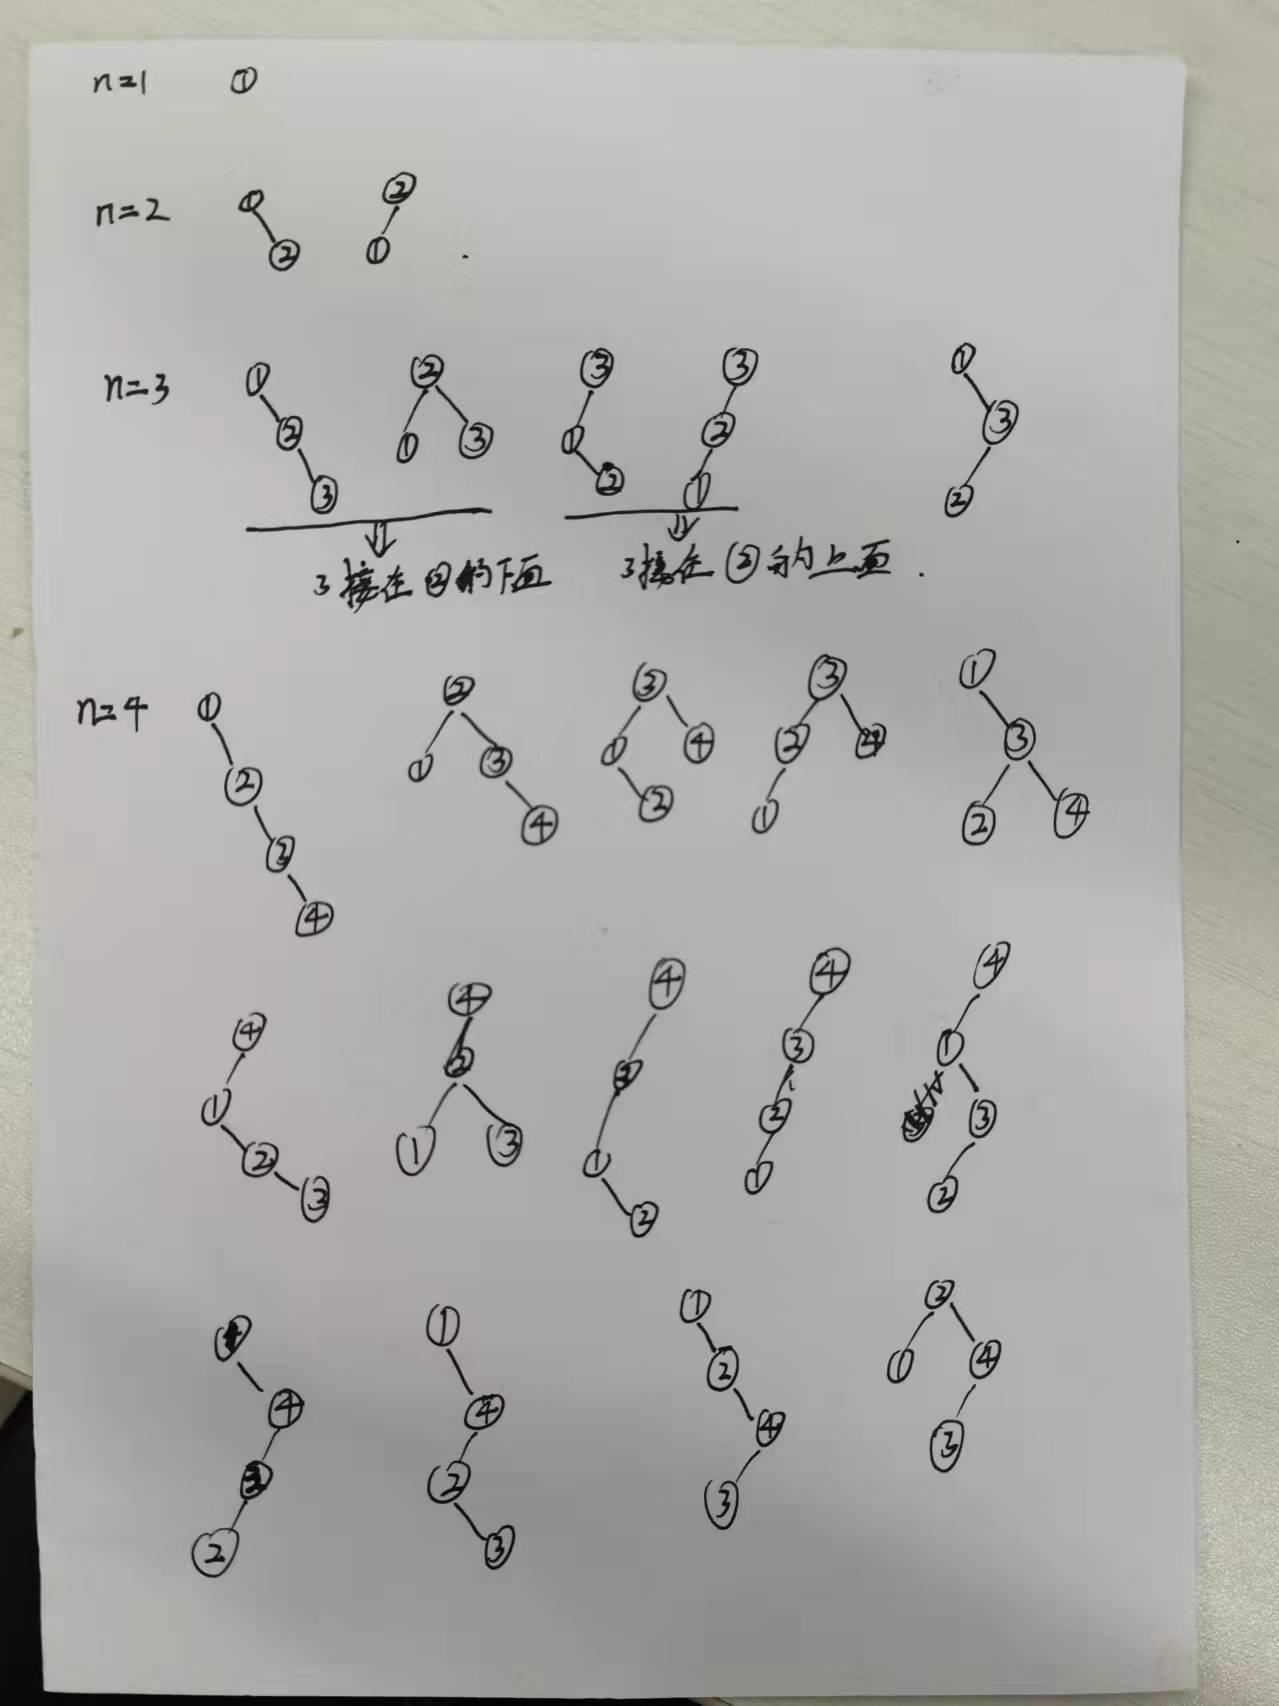 n=1 ①
n=2 ① ② ② ①
n=3 ① ② ③ ② ① ③ ③ ① ② ③ ② ① ① ③ ②
3接在②的下面 3接在②的上面.
n=4 ① ② ③ ④ ② ① ③ ④ ③ ① ④ ② ③ ② ④ ① ① ③ ② ④
④ ① ② ③ ④ ② ① ③ ④ ③ ① ② ④ ③ ② ① ④ ① ③ ②
④ ③ ② ① ④ ② ③ ① ② ④ ③ ② ① ④ ③